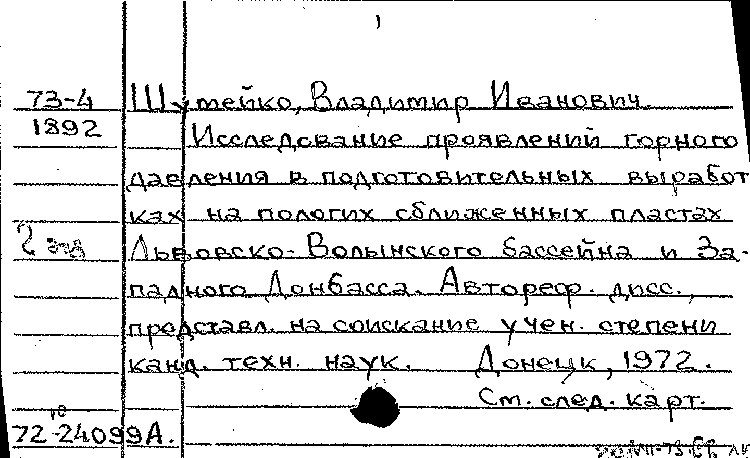 1
73-4 Шутейко, Владимир Иванович.
1892 Исследование проявлений горного
давления в подготовительных выработ
ках на пологих сближенных пластах
Львовско-Волынского бассейна и За-
падного Донбасса. Автореф. дисс.,
представл. на соискание учен. степени
канд. техн. наук. Донецк, 1972.
См. след. карт.
72-24099А.